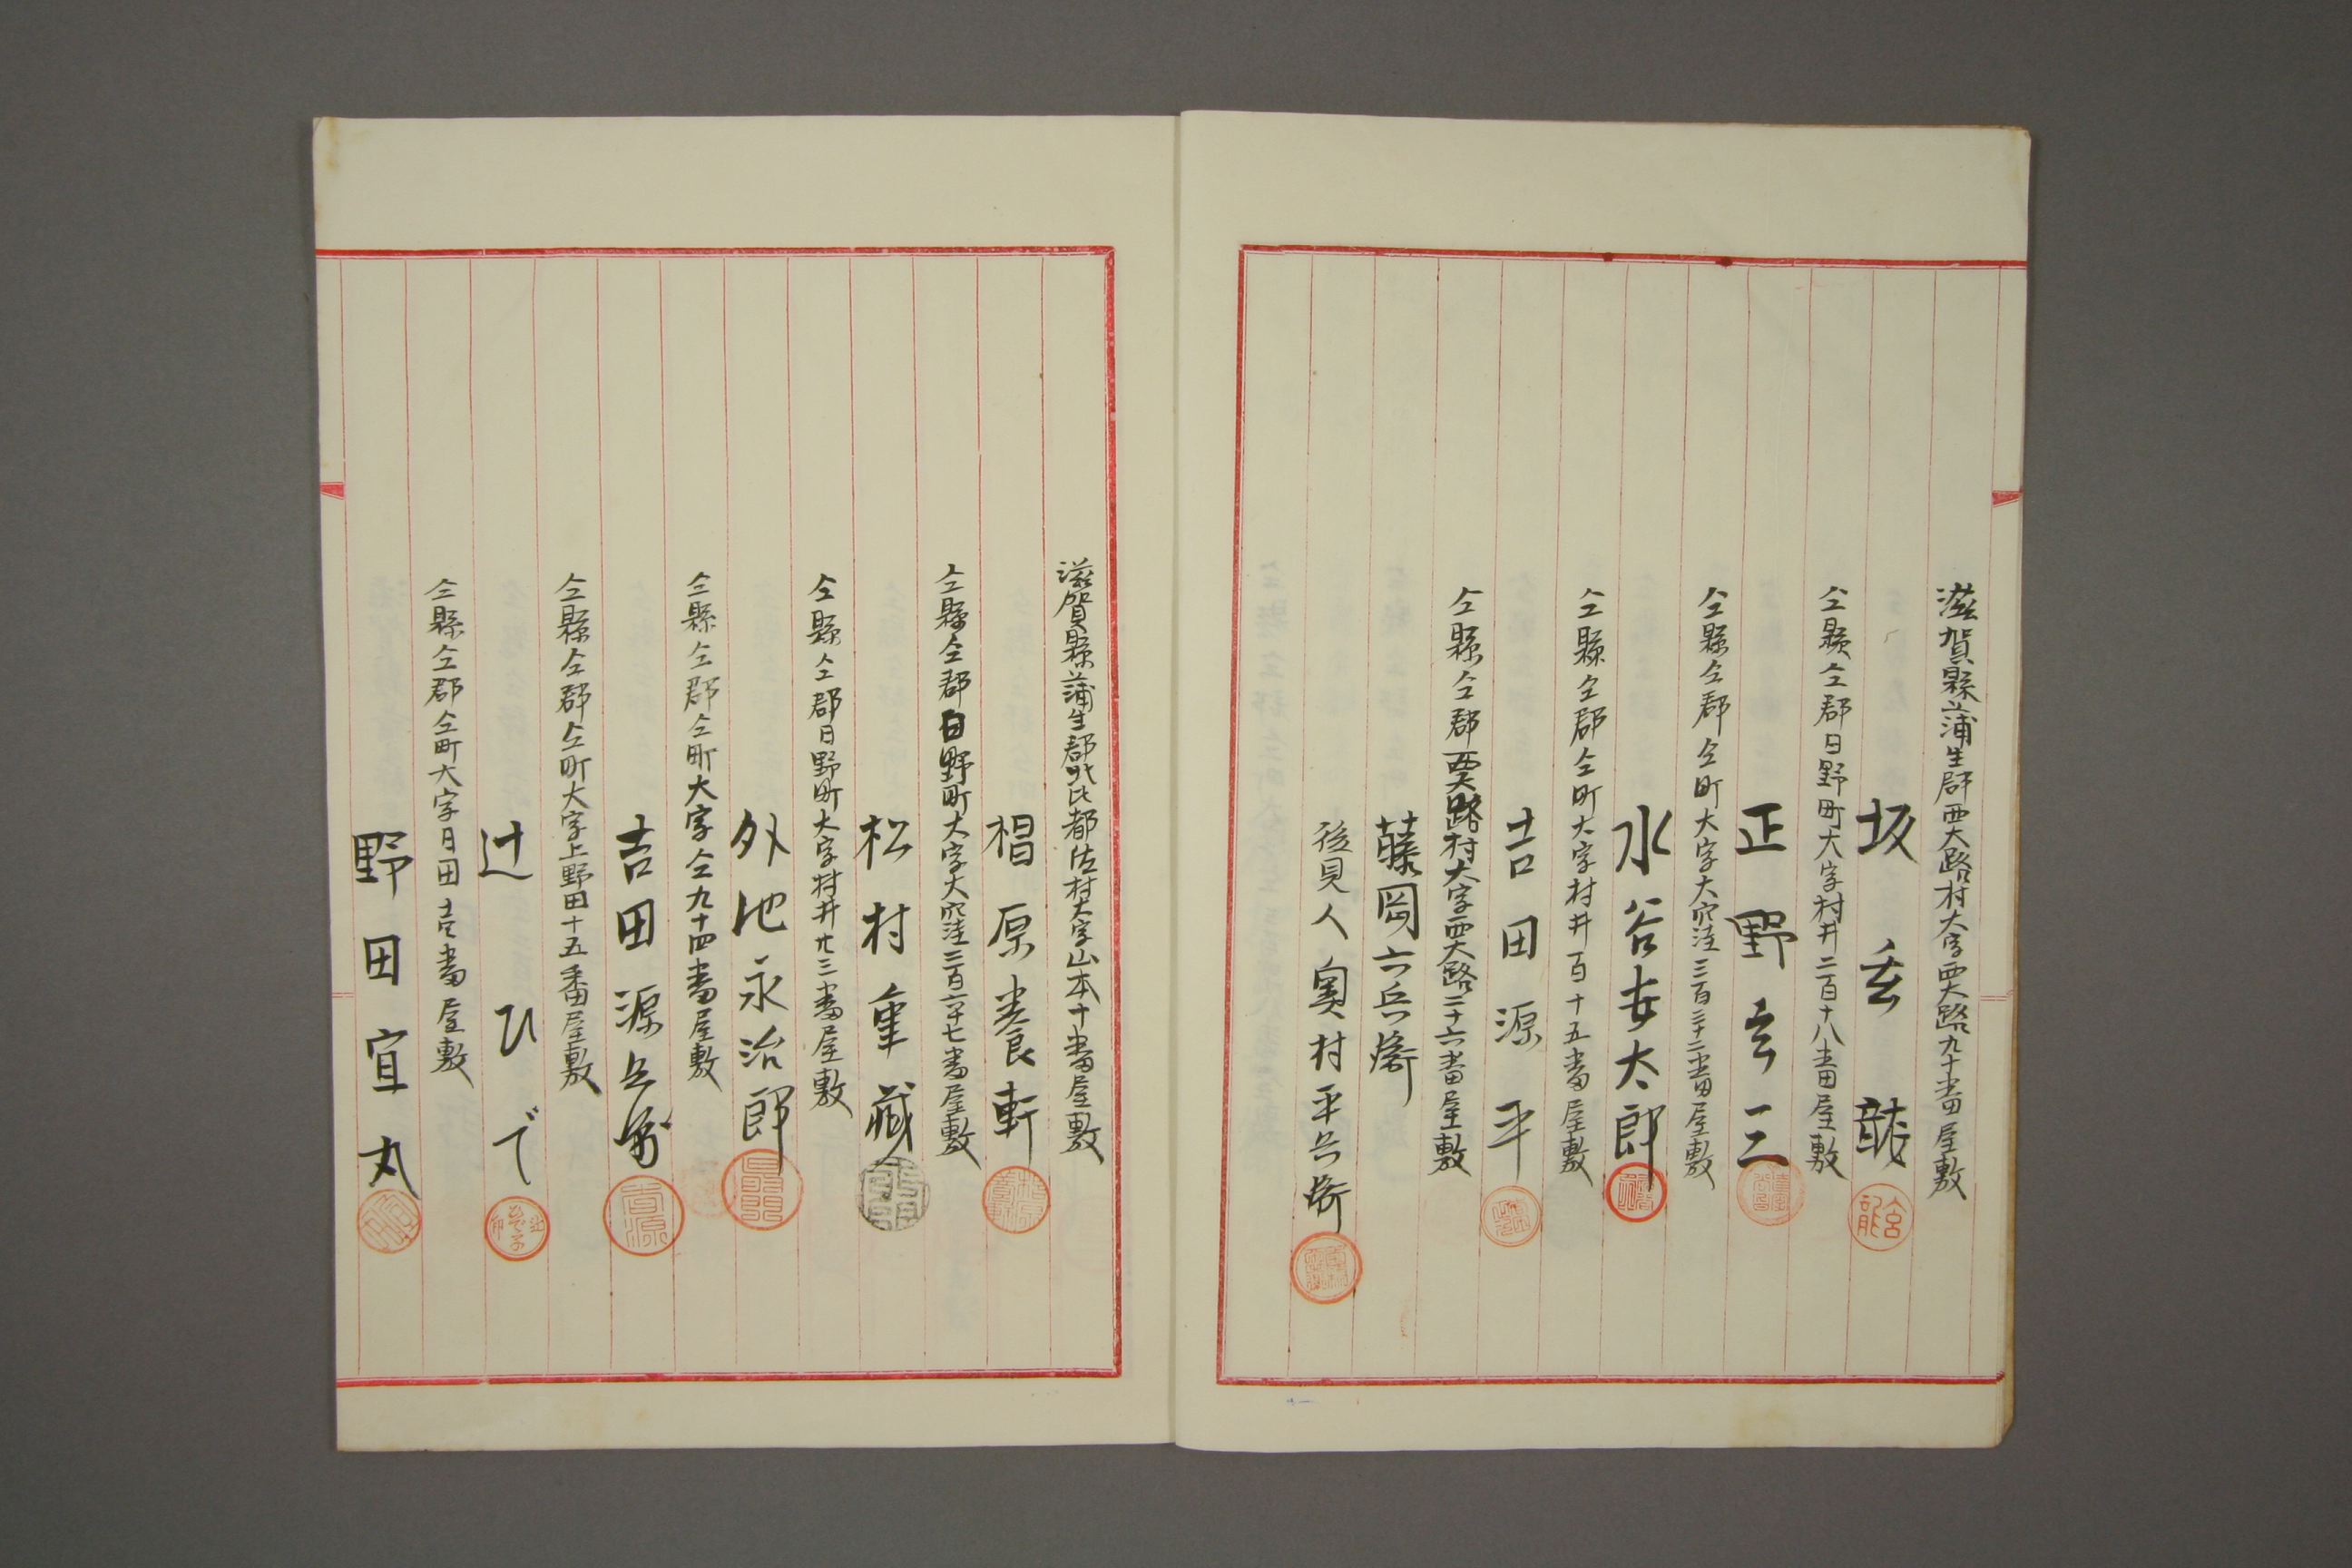 滋賀縣蒲生郡西大路村大字西大路九十番屋敷
坂玄龍
仝縣仝郡日野町大字村井二百十八番屋敷
正野玄三
仝縣仝郡仝町大字大窪三百三十二番屋敷
水谷安太郎
仝縣仝郡仝町大字村井百十五番屋敷
吉田源平
仝縣仝郡西大路村大字西大路二十六番屋敷
藤岡六兵衛
後見人奥村平兵衛
滋賀縣蒲生郡北比都佐村大字山本十番屋敷
椙原養軒
仝縣仝郡日野町大字大窪三百六十七番屋敷
松村重藏
仝縣仝郡日野町大字村井廿三番屋敷
外池永治郎
仝縣仝郡仝町大字仝九十四番屋敷
吉田源兵衛
仝縣仝郡仝町大字上野田十五番屋敷
辻ひで
仝縣仝郡仝町大字日田壱番屋敷
野田宜丸